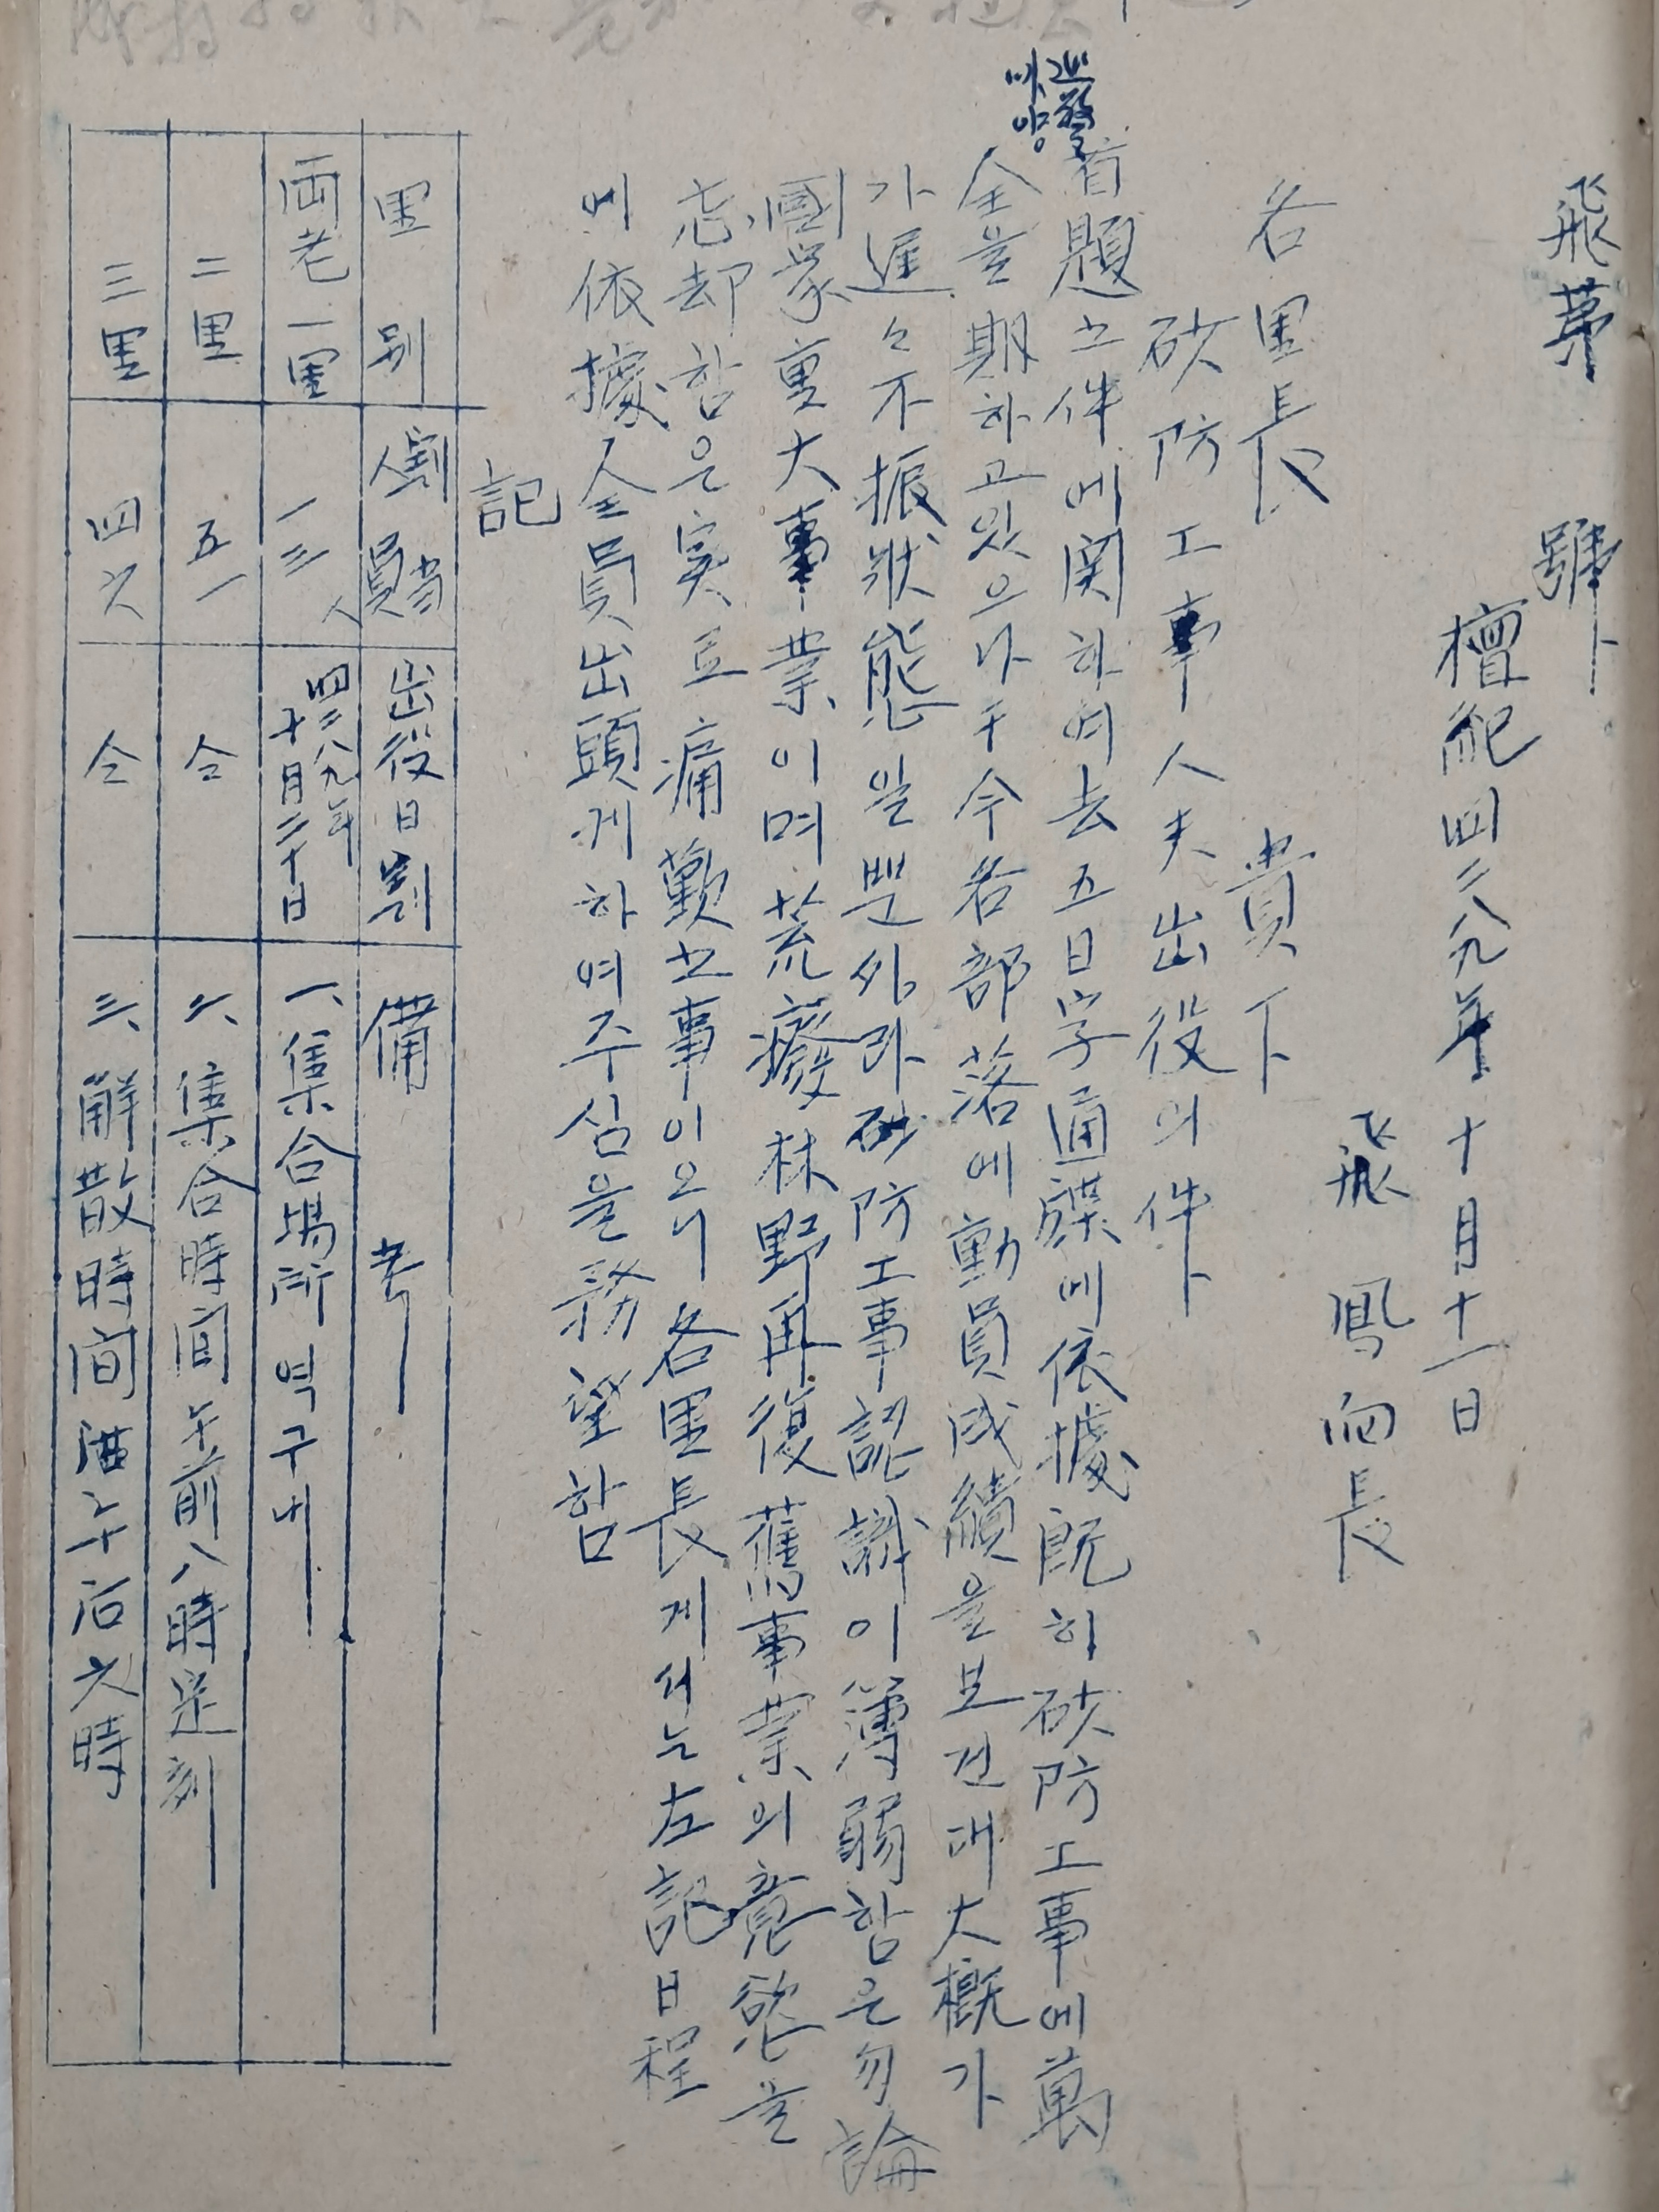 飛第　　號
檀紀四二八九年十月十一日
飛鳳面長
各里長　　貴下
砂防工事人夫出役의件
首題之件에関하여去五日字通牒에依據既히砂防工事에萬
全을期하고있으나于今各部落에動員成績을보건대大概가
가遲々不振狀態일뿐外라砂防工事認識이薄弱함은勿論
國家重大事業이며荒癈林野再復舊事業의意慾을
忘却함은実로痛歎之事이오니各里長게서는左記日程
에依據人全員出頭게하여주심을務望함
記
里別　割當人員　出役日割　備考
両老一里　一三人　四二八九年十月二十日　一、集合場所 역구내
二里　五一　仝　二、集合時间午前八時定刻
三里　四六　仝　三、解散時间 午后六時